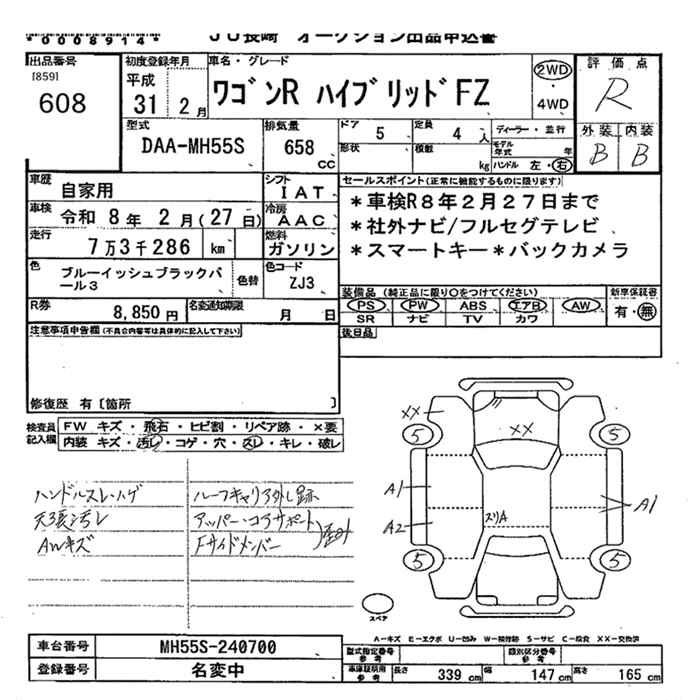 *0008914*
JU長崎 オークション出品申込書
出品番号
[859]
608
初度登録年月
平成
31 2 月
車名・グレード
ワゴンR ハイブリッドFZ
2WD
・
4WD
評価点
R
外装 内装
B B
型式
DAA-MH55S
排気量
658
cc
ドア 5
形状
定員 4 人
積数 kg
ディーラー・並行
モデル年式 年
ハンドル 左・右
車歴 自家用
シフト
IAT
車検 令和 8年 2月(27日)
冷房
AAC
走行 7万3千286 km
燃料
ガソリン
色 ブルーイッシュブラックパール3
色替
色コード
ZJ3
R券 8,850 円
名変通知期限 月 日
セールスポイント(正常に機能するものに限ります)
*車検R8年2月27日まで
*社外ナビ/フルセグテレビ
*スマートキー*バックカメラ
装備品(純正品に限り○をつけてください)
PS PW ABS エアB AW
SR ナビ TV カワ
新車保証書
有・無
後日品
注意事項申告欄(不具合内容等は具体的に記入して下さい)
修復歴 有〔箇所 〕
検査員記入欄
FW キズ・飛石・ヒビ割・リペア跡・×要
内装 キズ・汚レ・コゲ・穴・スレ・キレ・破レ
ハンドルスレ・ハゲ
天張汚レ
AWキズ
ルーフキャリア外し跡
アッパー・コアサポート
Fサイドメンバー
XX
XX
5
5
A1
A2
スリA
A1
5
5
スペア
A-キズ E-エクボ U-凹み W-補修跡 S-サビ C-腐食 XX-交換済
車台番号 MH55S-240700
登録番号 名変中
型式指定番号
参考
類別区分番号
参考
車庫証明用
参考
長さ 339 cm 幅 147 cm 高さ 165 cm